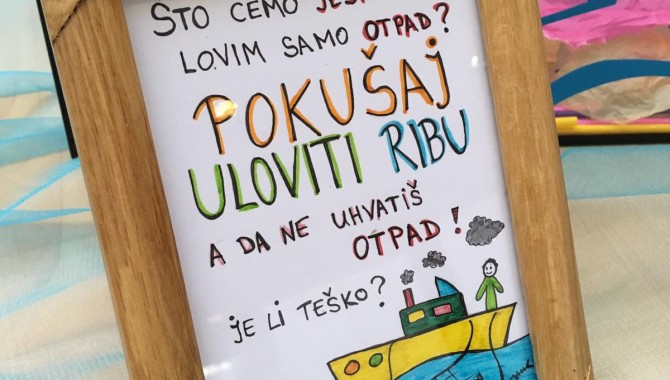 ŠTO ĆEMO JESTI
LOVIM SAMO OTPAD?
POKUŠAJ
ULOVITI RIBU
A DA NE UHVATIŠ
OTPAD!
JE LI TEŠKO?